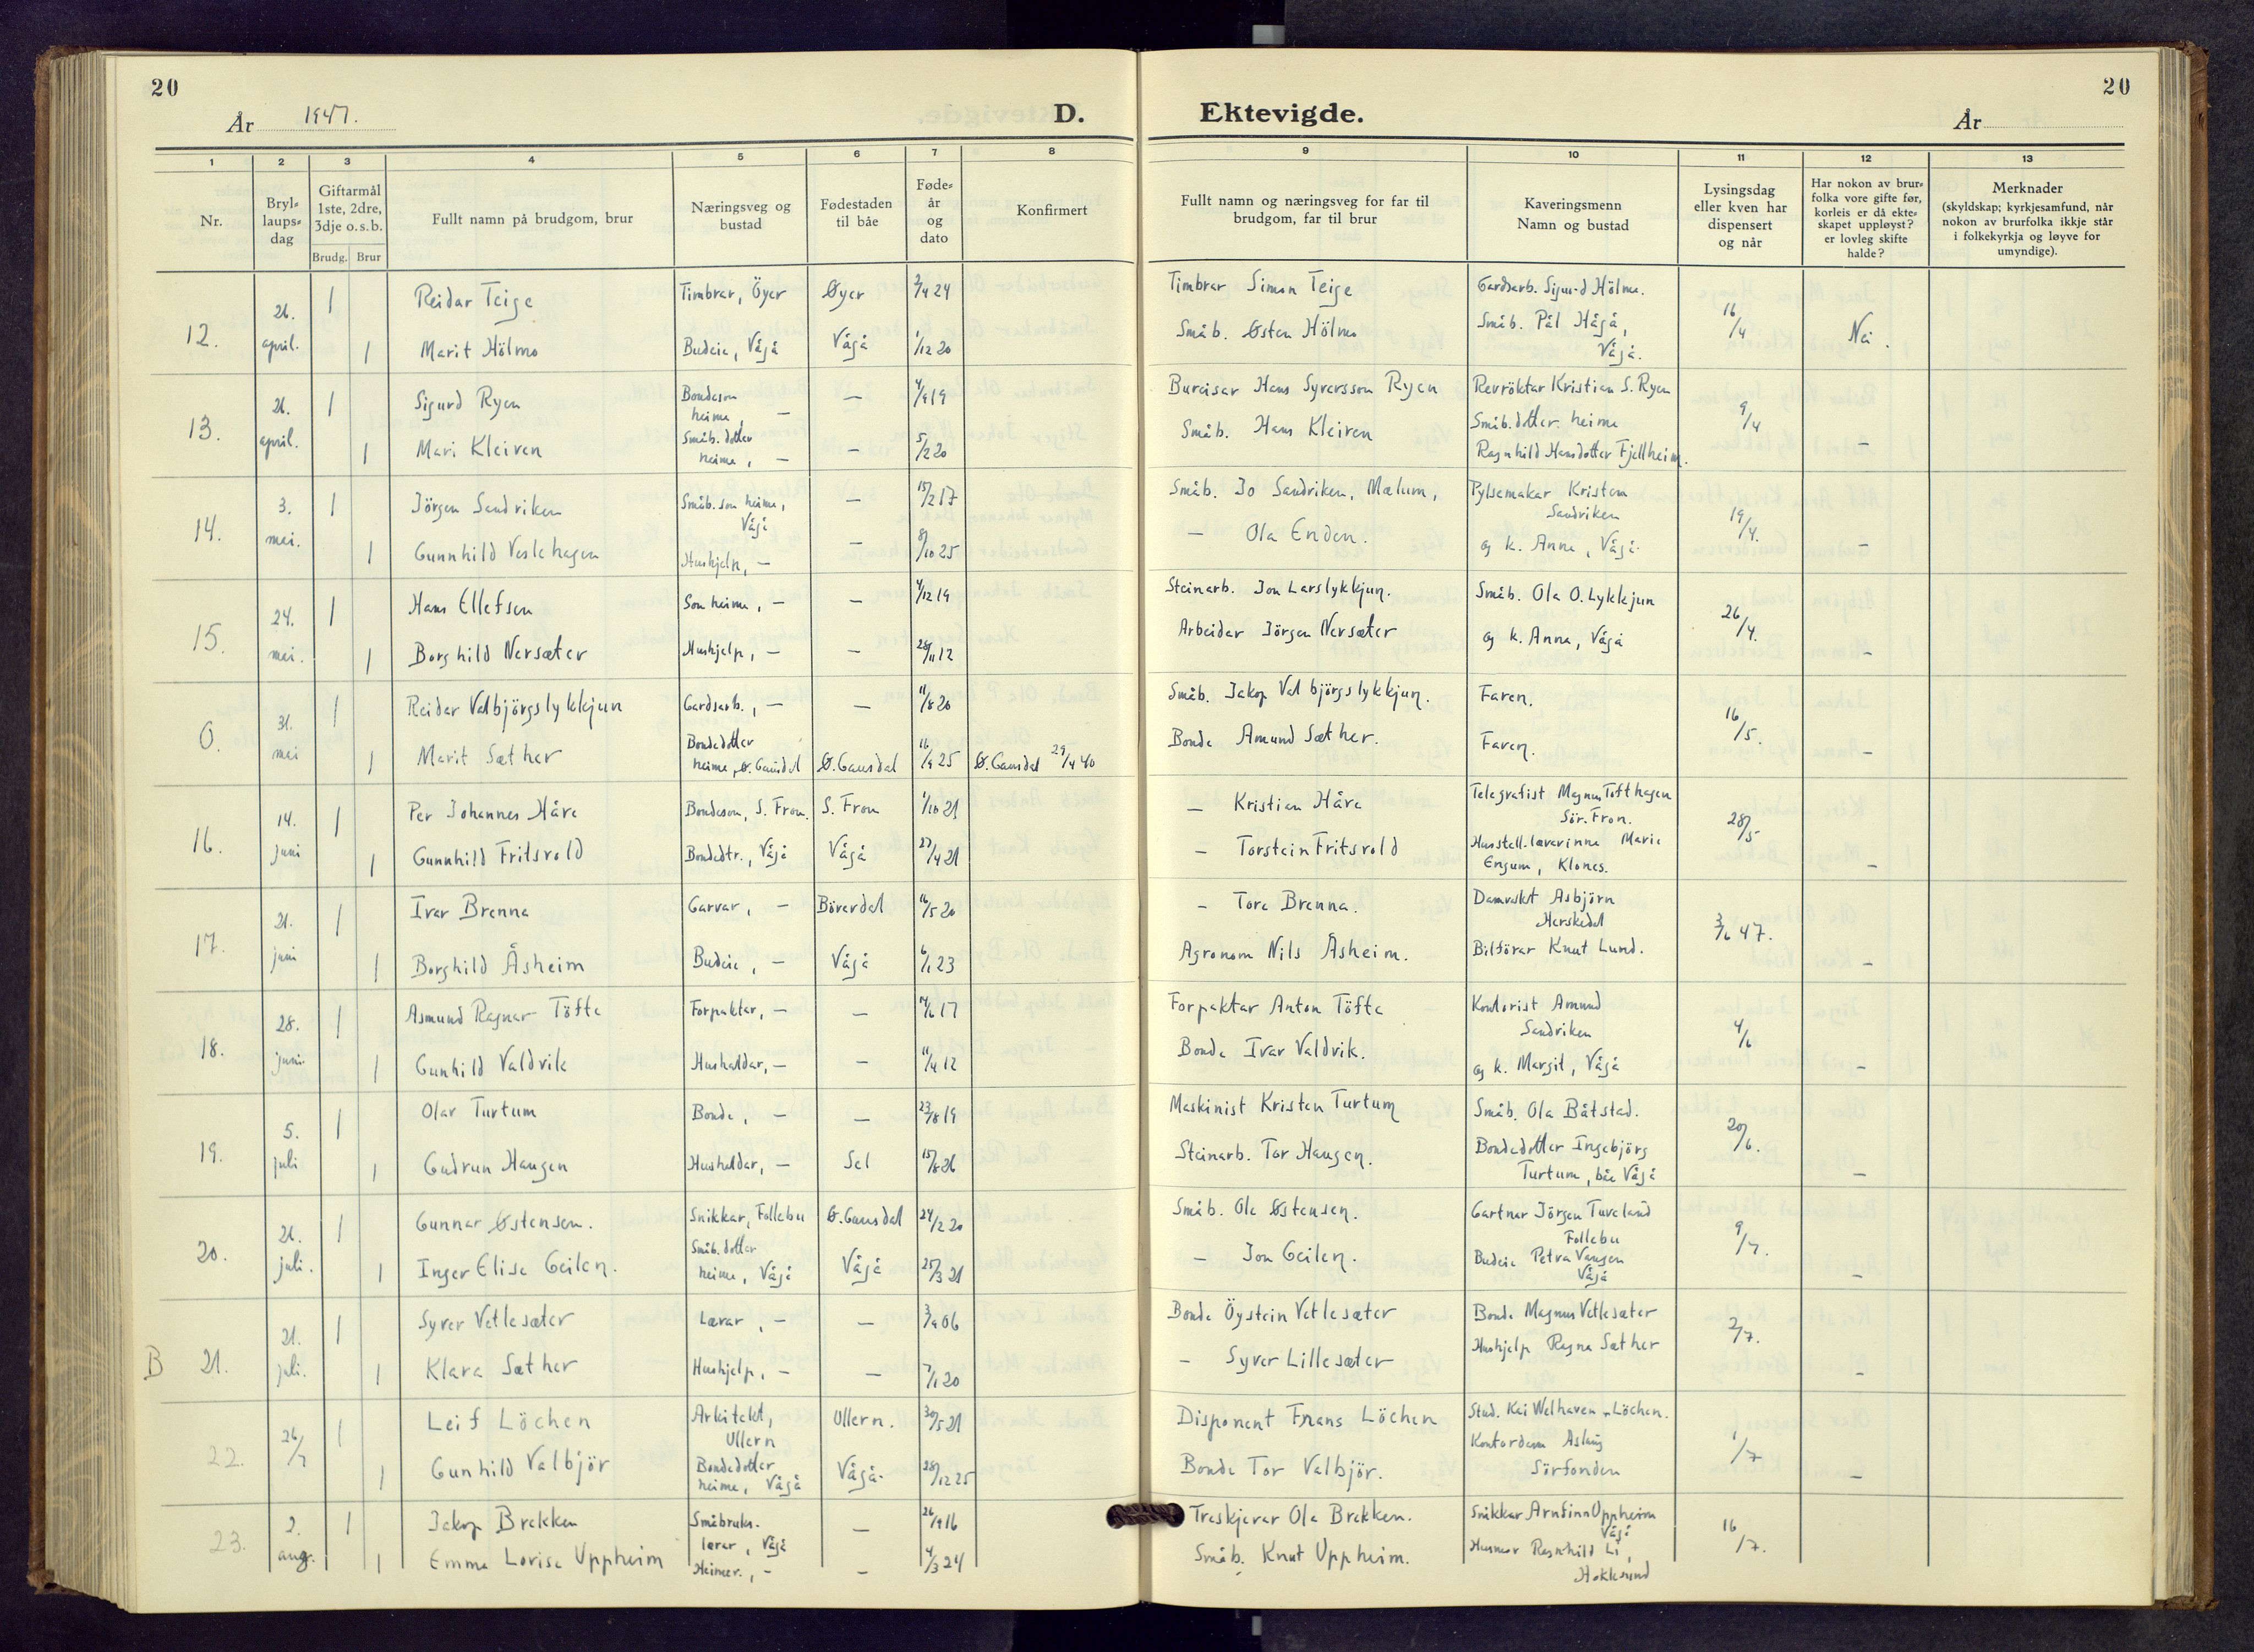 20
År 1947.
D.
Ektevigde.
20
År
1 2 3 4 5 6 7 8 9 10 11 12 13
Nr.
Bryl-
laups-
dag
Giftarmål
1ste, 2dre,
3dje o.s.b.
Brudg. Brur
Fullt namn på brudgom, brur
Næringsveg og
bustad
Fødestaden
til båe
Føde-
år
og
dato
Konfirmert
Fullt namn og næringsveg for far til
brudgom, far til brur
Kaveringsmenn
Namn og bustad
Lysingsdag
eller kven har
dispensert
og når
Har nokon av brur-
folka vore gifte før,
korleis er då ekte-
skapet uppløyst?
er lovleg skifte
halde?
Merknader
(skyldskap; kyrkjesamfund, når
nokon av brurfolka ikkje står
i folkekyrkja og løyve for
umyndige).
12. 26. april. 1 Reidar Teige Timbrar, Öyer Øyer 2/4 24 Timbrar Simen Teige Gardsarb. Sigurd Hölmo. 16/4 Nei.
1 Marit Hölmo Budeie, Vågå Vågå 1/12 20 Småb. Østen Hölmo Småb. Pål Hågå,
Vågå.
13. 26. april. 1 Sigurd Ryen Bondeson
heime, — — 4/9 19 Bureisar Hans Syversson Ryen Revröktar Kristian S. Ryen 9/4 –
1 Mari Kleiven Småb. dotter
heime, — — 5/2 20 Småb. Hans Kleiven Småb.dotter heime
Ragnhild Hansdotter Fjellheim.
14. 3. mai. 1 Jörgen Sandviken Småb. son heime,
Vågå — 15/2 17 Småb. Jo Sandviken, Mælum, Pylsemakar Kristen
Sandviken 19/4. –
1 Gunnhild Veslehagen Hushjelp, — — 8/10 25 — Ola Enden. og k. Anna, Vågå.
15. 24. mai. 1 Hans Ellefsen Son heime, — — 4/12 19 Steinarb. Jon Larslykkjun. Småb. Ola O. Lykkjun 26/4. –
1 Borghild Nersæter Hushjelp, — — 28/11 12 Arbeidar Jörgen Nersæter og k. Anna, Vågå
0. 31. mai 1 Reidar Valbjörgslykkjun Gardsarb., — — 11/8 20 Småb. Jakop Valbjörgslykkjun. Faren. 16/5. –
1 Marit Sæther Bondedotter
heime, Ø. Gausdal Ø. Gausdal 16/9 25 Ø. Gausdal 29/9 40 Bonde Amund Sæther. Faren.
16. 14. juni 1 Per Johannes Håve Bondeson, S. Fron. S. Fron 1/10 21 — Kristian Håve Telegrafist Magnus Tofthagen
Sör. Fron. 28/5 –
1 Gunnhild Fritsvold Bondedtr., Vågå Vågå 27/4 21 — Torstein Fritsvold Husstell-lærerinne Marie
Engum, Klones.
17. 21. juni 1 Ivar Brenna Garvar, — Böverdal 16/5 20 — Tore Brenna. Damvakt Asbjörn
Herskedal 3/6 47. –
1 Borghild Åsheim Budeie, — Vågå 6/1 23 Agronom Nils Åsheim. Bilförar Knut Lund.
18. 28. juni. 1 Asmund Ragnar Töfte Forpaktar, — — 14/6 17 Forpaktar Anton Töfte Kontorist Amund
Sandviken 4/6 –
1 Gunhild Valdvik Hushaldar, — — 11/4 12 Bonde Ivar Valdvik. og k. Margit, Vågå
19. 5. juli 1 Olav Turtum Bonde, — — 23/8 19 Maskinist Kristen Turtum Småb. Ola Båtstad. 20/6. –
1 Gudrun Haugen Hushaldar, — Sel 15/8 26 Steinarb. Tor Haugen. Bondedotter Ingebjörg
Turtum, båe Vågå
20. 21. juli. 1 Gunnar Østensen. Snikkar, Follebu Ø. Gausdal 24/2 20 Småb. Ole Østensen. Gartnar Jörgen Tuveland
Follebu 9/7. –
1 Inger Elise Geilen. Småb. dotter
heime, Vågå Vågå 25/3 21 — Jon Geilen. Budeie Petra Vangen
Vågå
B 21. 21. juli. 1 Syver Vetlesæter Lærar, — — 3/9 06 Bonde Öystein Vetlesæter Bonde Magnus Vetlesæter 2/7. –
1 Klara Sæther Hushjelp, — — 7/1 20 — Syver Lillesæter Hushjelp Ragna Sæther
22. 26/7 1 Leif Löchen Arkitekt,
Ullern Ullern. 30/5 21 Disponent Frans Löchen Stud. Kai Welhaven Löchen. 1/7 –
1 Gunhild Valbjör Bondedotter
heime, Vågå Vågå. 28/12 25 Bonde Tor Valbjör. Kontordame Aslaug
Sörfonden
23. 2. aug. 1 Jakop Brekken Småbruks-
lærar, Vågå — 26/9 16 Treskjerar Ola Brekken. Snikkar Arnfinn Uppheim
Vågå 16/7.
1 Emma Lovise Uppheim Heimev., — — 4/3 24 Småb. Knut Uppheim. Husmor Ragnhild Li,
Hokksund